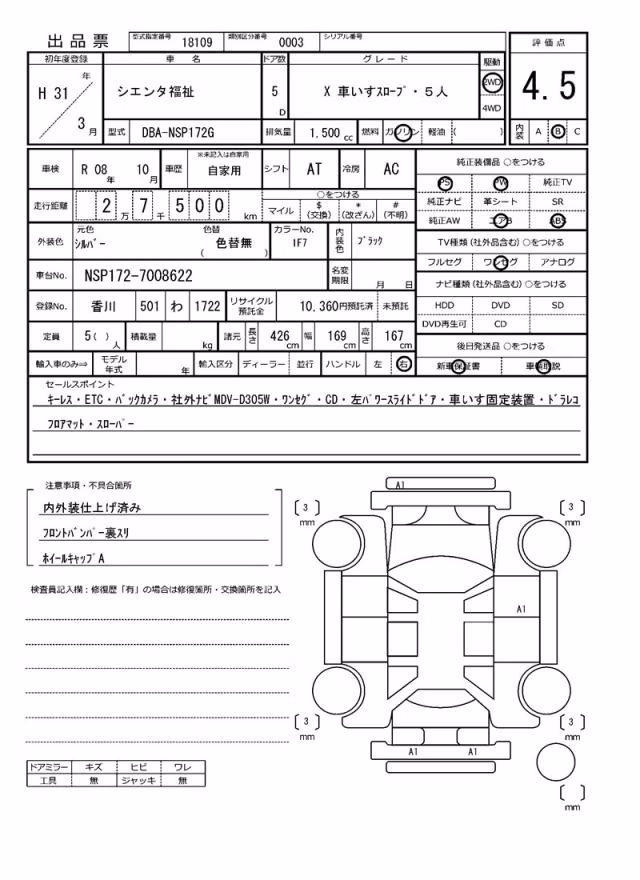 出品票 型式指定番号 18109 類別区分番号 0003 シリアル番号
評価点
4.5
内装 A B C
初年度登録 車名 ドア数 グレード 駆動
H 31年 3月 シエンタ福祉 5 D X 車いすスロープ・5人 2WD 4WD
型式 DBA-NSP172G 排気量 1.500 cc 燃料 ガソリン 軽油 ( )
車検 R 08年 10月 車歴 ※未記入は自家用 自家用 シフト AT 冷房 AC
走行距離 2万7千500km ○をつける
マイル $(交換) *(改ざん) #(不明)
外装色 元色 シルバー 色替 ( 色替無 ) カラーNo. 1F7 内装色 ブラック
車台No. NSP172-7008622 名変期限 月 日
登録No. 香川 501 わ 1722 リサイクル預託金 10.360円預託済 未預託
定員 5( )人 積載量 kg 諸元 長さ 426cm 幅 169cm 高さ 167cm
輸入車のみ⇒ モデル年式 年 輸入区分 ディーラー 並行 ハンドル 左 右
純正装備品 ○をつける
PS PW 純正TV
純正ナビ 革シート SR
純正AW エアB ABS
TV種類(社外品含む)○をつける
フルセグ ワンセグ アナログ
ナビ種類(社外品含む)○をつける
HDD DVD SD
DVD再生可 CD
後日発送品 ○をつける
新車保証書 車輌取説
セールスポイント
キーレス・ETC・バックカメラ・社外ナビMDV-D305W・ワンセグ・CD・左パワースライドドア・車いす固定装置・ドラレコ
フロアマット・スローパー
注意事項・不具合箇所
内外装仕上げ済み
フロントバンパー裏スリ
ホイールキャップA
検査員記入欄:修復歴「有」の場合は修復箇所・交換箇所を記入
ドアミラー キズ ヒビ ワレ
工具 無 ジャッキ 無
A1
3 mm
3 mm
A1
3 mm
3 mm
A1 A1
mm